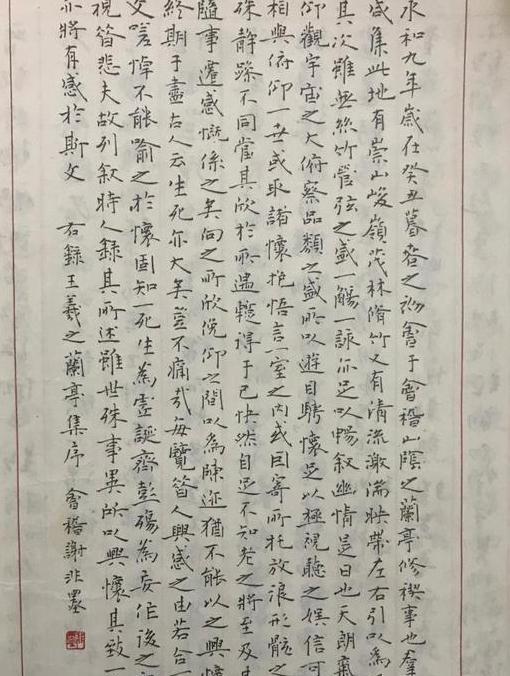 永和九年歲在癸丑暮春之初會于會稽山陰之蘭亭修禊事也羣
咸集此地有崇山峻嶺茂林脩竹又有清流激湍映帶左右引以為
其次雖無絲竹管弦之盛一觴一詠亦足以暢敘幽情是日也天朗氣
仰觀宇宙之大俯察品類之盛所以遊目騁懷足以極視聽之娛信可
相與俯仰一世或取諸懷抱悟言一室之內或因寄所托放浪形骸之
殊靜躁不同當其欣於所遇暫得于己快然自足不知老之將至及其
隨事遷感慨係之矣向之所欣俛仰之間以為陳迹猶不能以之興懷
終期于盡古人云生死亦大矣豈不痛哉每覽昔人興感之由若合一
文嗟悼不能喻之於懷固知一死生為虛誕齊彭殤為妄作後之
視昔悲夫故列敘時人錄其所述雖世殊事異所以興懷其致一
亦將有感於斯文 右錄王羲之蘭亭集序 會稽謝非墨